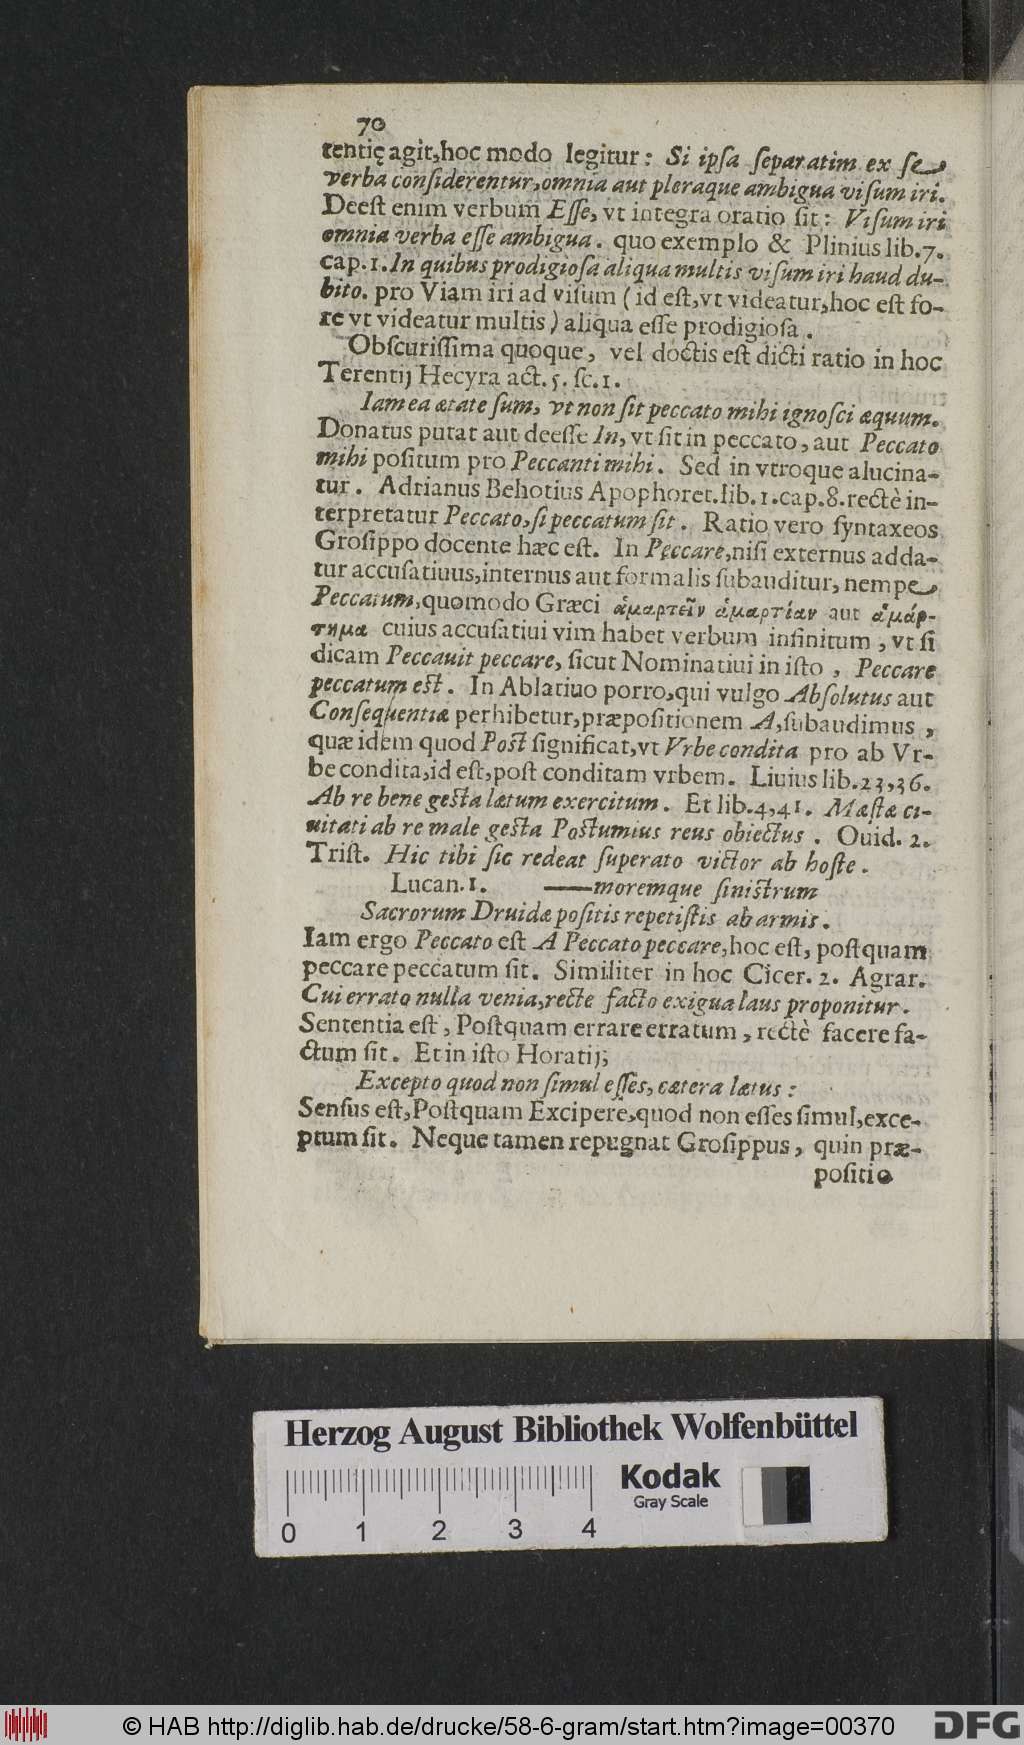 70
tentię agit,hoc modo legitur: Si ipſa ſeparatim ex ſe
verba conſiderentur,omnia aut pleraque ambigua viſum iri.
Deeſt enim verbum Eſſe, vt integra oratio ſit: Viſum iri
omnia verba eſſe ambigua. quo exemplo & Plinius lib.7.
cap.1. In quibus prodigioſa aliqua multis viſum iri haud du-
bito. pro Viam iri ad viſum (id eſt,vt videatur,hoc eſt fo-
re vt videatur multis) aliqua eſſe prodigioſa.
Obſcuriſſima quoque, vel doctis eſt dicti ratio in hoc
Terentij Hecyra act.5. ſc.1.
Iam ea ætate ſum, vt non ſit peccato mihi ignoſci æquum.
Donatus putat aut deeſſe In, vt ſit in peccato, aut Peccato
mihi poſitum pro Peccanti mihi. Sed in vtroque alucina-
tur. Adrianus Behotius Apophoret.lib.1.cap.8.rectè in-
terpretatur Peccato,ſi peccatum ſit. Ratio vero ſyntaxeos
Groſippo docente hæc eſt. In Peccare,niſi externus adda-
tur accuſatiuus,internus aut formalis ſubauditur, nempe
Peccatum,quomodo Græci ἁμαρτεῖν ἁμαρτίαν aut ἁμάρ-
τημα cuius accuſatiui vim habet verbum infinitum, vt ſi
dicam Peccauit peccare, ſicut Nominatiui in iſto, Peccare
peccatum eſt. In Ablatiuo porro,qui vulgo Abſolutus aut
Conſequentiæ perhibetur,præpoſitionem A,ſubaudimus,
quæ idem quod Poſt ſignificat,vt Vrbe condita pro ab Vr-
be condita,id eſt,poſt conditam vrbem. Liuius lib.23,36.
Ab re bene geſta lætum exercitum. Et lib.4,41. Mæſtæ ci-
uitati ab re male geſta Poſtumius reus obiectus. Ouid. 2.
Triſt. Hic tibi ſic redeat ſuperato victor ab hoſte.
Lucan.1. —moremque ſiniſtrum
Sacrorum Druidæ poſitis repetiſtis ab armis.
Iam ergo Peccato eſt A Peccato peccare,hoc eſt, poſtquam
peccare peccatum ſit. Similiter in hoc Cicer. 2. Agrar.
Cui errato nulla venia,recte facto exigua laus proponitur.
Sententia eſt, Poſtquam errare erratum, rectè facere fa-
ctum ſit. Et in iſto Horatij;
Excepto quod non ſimul eſſes, cætera lætus:
Senſus eſt,Poſtquam Excipere,quod non eſſes ſimul,exce-
ptum ſit. Neque tamen repugnat Groſippus, quin præ-
poſitio
Herzog August Bibliothek Wolfenbüttel
Kodak
Gray Scale
0 1 2 3 4
© HAB http://diglib.hab.de/drucke/58-6-gram/start.htm?image=00370
DFG